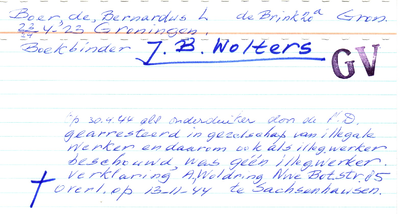 Boer, de, Bernardus L de Brink 20a Gron.
22/27 4-23 Groningen.
Boekbinder J. B. Wolters
GV
op 30.4.44 als onderduiker door de S.D.
gearresteerd in gezelschap van illegale
werker en daarom ook als illeg. werker
beschouwd, was géén illeg. werker.
Verklaring A. Woldring Nwe Botstr. 85
overl. op 13-11-44 te Sachsenhausen.